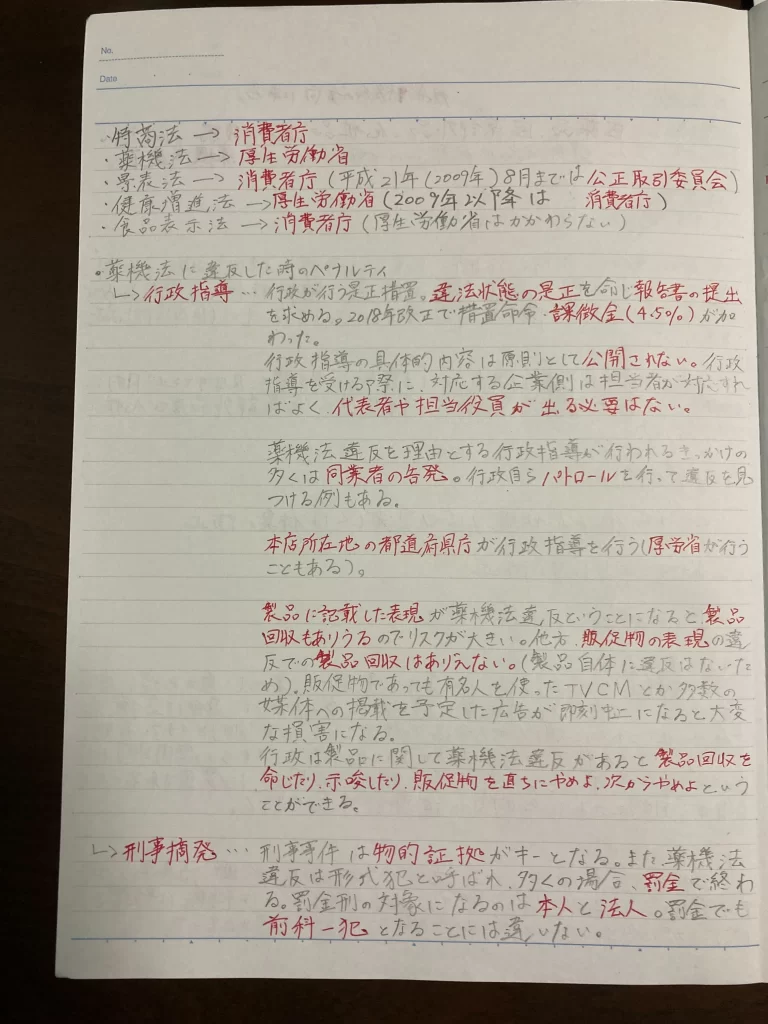 No.
Date
・特商法 → 消費者庁
・薬機法 → 厚生労働省
・景表法 → 消費者庁(平成21年(2009年)8月までは公正取引委員会)
・健康増進法 → 厚生労働省(2009年以降は 消費者庁)
・食品表示法 → 消費者庁(厚生労働省はかかわらない)
・薬機法に違反した時のペナルティ
↳ 行政指導… 行政が行う是正措置。違法状態の是正を命じ報告書の提出
を求める。2018年改正で措置命令・課徴金(4.5%)が加
わった。
行政指導の具体的内容は原則として公開されない。行政
指導を受ける際に、対応する企業側は担当者が対応すれ
ばよく、代表者や担当役員が出る必要はない。
薬機法違反を理由とする行政指導が行われるきっかけの
多くは同業者の告発。行政自らパトロールを行って違反を見
つける例もある。
本店所在地の都道府県庁が行政指導を行う(厚労省が行う
こともある)。
製品に記載した表現が薬機法違反ということになると、製品
回収もありうるのでリスクが大きい。他方、販促物の表現の違
反での製品回収はありえない。(製品自体に違反はないた
め)。販促物であっても有名人を使ったTVCMとか多数の
媒体への掲載を予定した広告が即刻中止になると大変
な損害になる。
行政は製品に関して薬機法違反があると製品回収を
命じたり、示唆したり、販促物を直ちにやめよ、次からやめよという
ことができる。
↳ 刑事摘発… 刑事事件は物的証拠がキーとなる。また薬機法
違反は形式犯と呼ばれ、多くの場合、罰金で終わ
る。罰金刑の対象になるのは本人と法人。罰金でも
前科一犯となることには違いない。